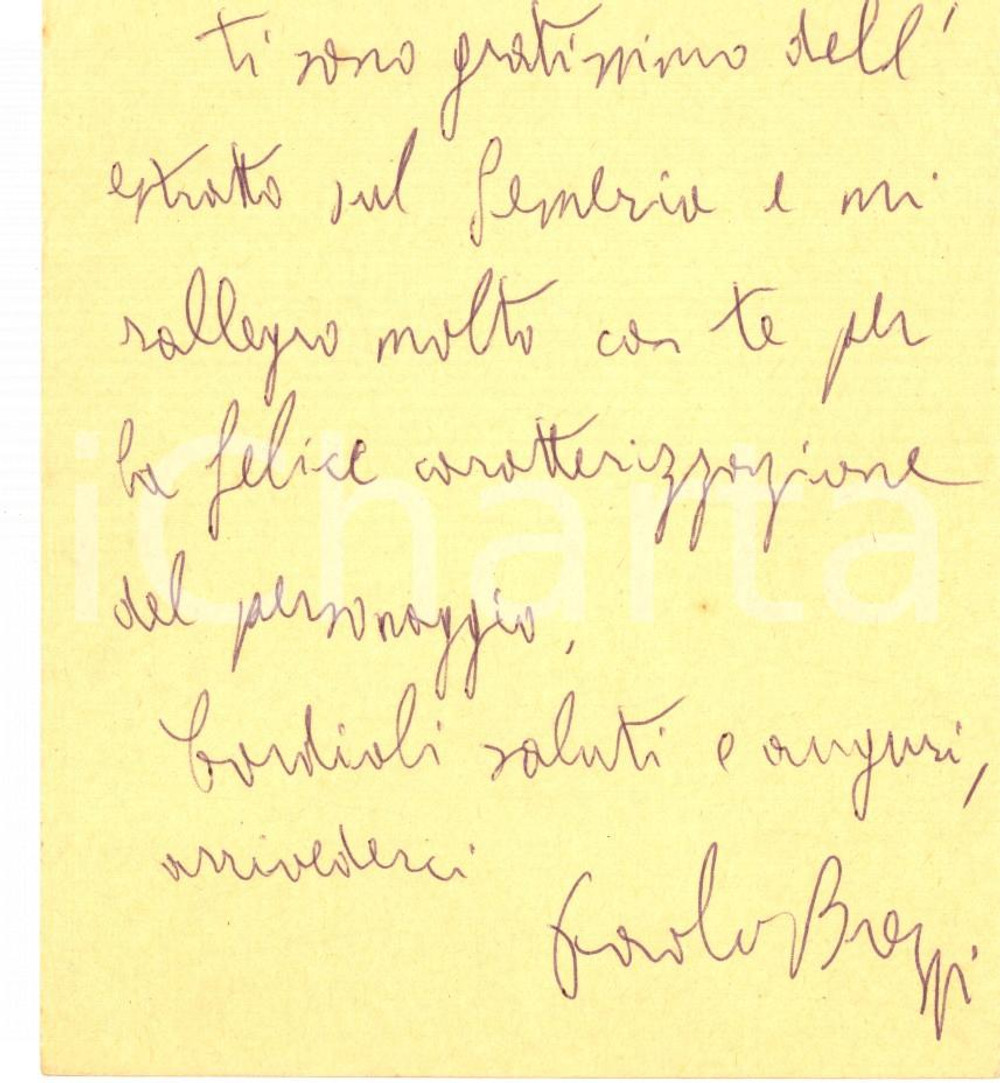 ti sono gratissimo dell'
estratto sul Semeria e mi
rallegro molto con te per
la felice caratterizzazione
iCharta
del personaggio,
Cordiali saluti e auguri,
arrivederci
Paolo Brezzi